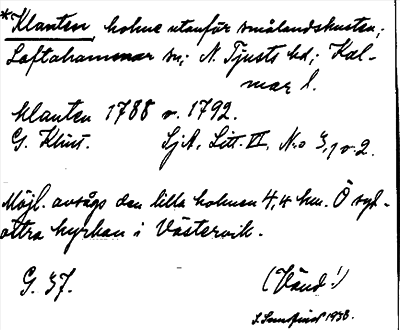 *Klanten, holme utanför smålandskusten;
Loftahammar sn; N. Tjusts hd; Kal-
mar l.
klanten 1788 o. 1792.
G. Klint. SjA, Litt. VI, N:o 3, 1 o 2.
Möjl. avsågs den lilla holmen 4,4 km. Ö syd-
ostra kyrkan i Västervik.
G. 37. (Vänd!)
1938.